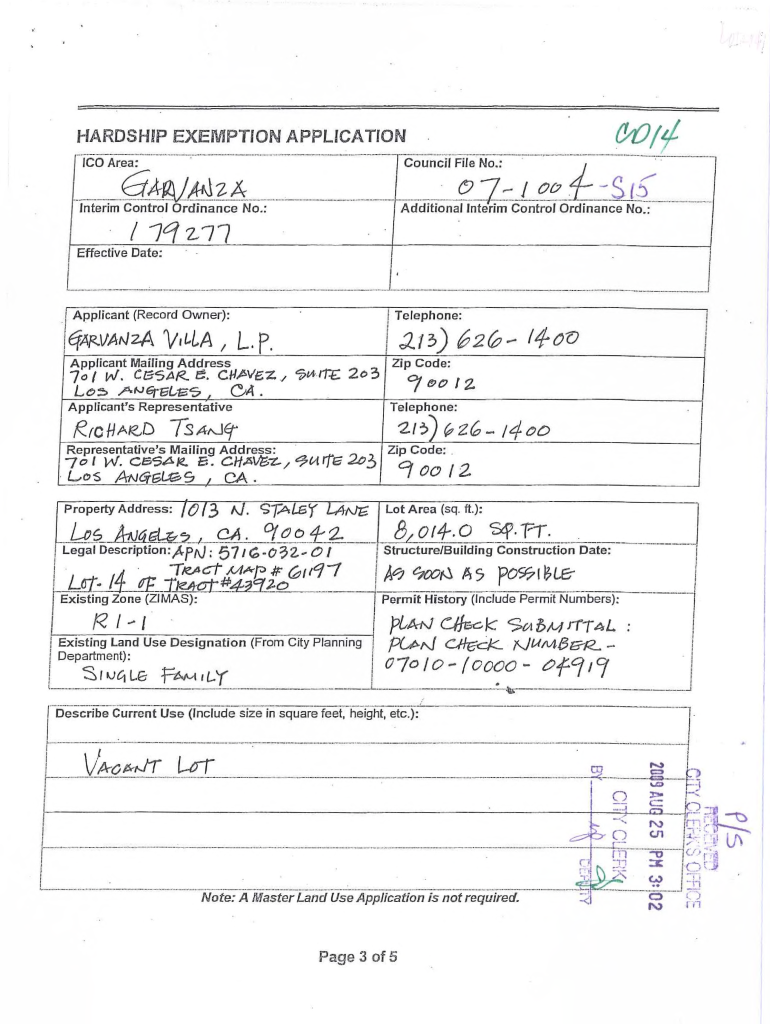 HARDSHIP EXEMPTION APPLICATION
CD14
ICO Area:
GARVANZA
Council File No.:
07-1004-S15
Interim Control Ordinance No.:
179277
Additional Interim Control Ordinance No.:
Effective Date:
Applicant (Record Owner):
GARVANZA VILLA, L.P.
Telephone:
213) 626-1400
Applicant Mailing Address
701 W. CESAR E. CHAVEZ, SUITE 203
LOS ANGELES, CA.
Zip Code:
90012
Applicant's Representative
RICHARD TSANG
Telephone:
213) 626-1400
Representative's Mailing Address:
701 W. CESAR E. CHAVEZ, SUITE 203
LOS ANGELES, CA.
Zip Code:
90012
Property Address: 1013 N. STALEY LANE
LOS ANGELES, CA. 90042
Lot Area (sq. ft.):
8,014.0 SQ.FT.
Legal Description: APN: 5716-032-01
TRACT MAP # 61197
LOT-14 OF TRACT #43920
Structure/Building Construction Date:
AS SOON AS POSSIBLE
Existing Zone (ZIMAS):
R1-1
Permit History (Include Permit Numbers):
PLAN CHECK SUBMITTAL :
PLAN CHECK NUMBER -
07010-10000-04919
Existing Land Use Designation (From City Planning
Department):
SINGLE FAMILY
Describe Current Use (Include size in square feet, height, etc.):
VACANT LOT
P/S
RECEIVED
CITY CLERK'S OFFICE
2009 AUG 25 PM 3:02
CITY CLERK
BY
DEPUTY
Note: A Master Land Use Application is not required.
Page 3 of 5